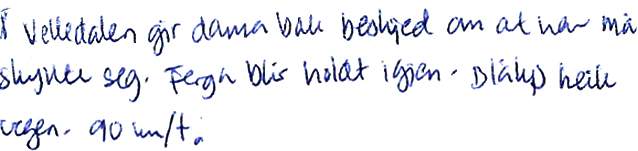 I Velledalen gir dama bak beskjed om at han må
skynte seg. Ferga blir holdt igjen. Blålys heile
vegen. 90 km/t.